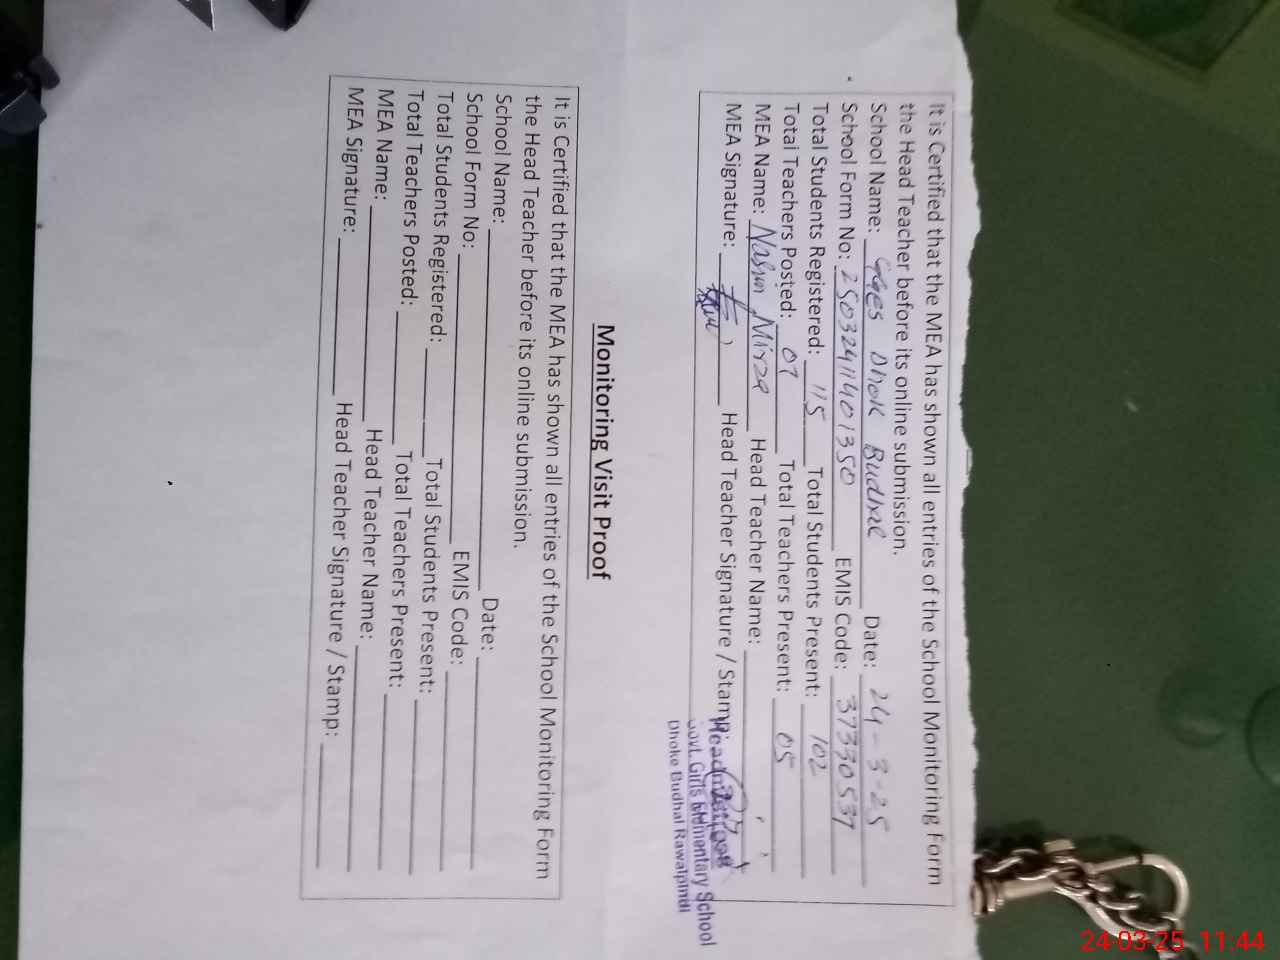 It is Certified that the MEA has shown all entries of the School Monitoring Form
the Head Teacher before its online submission.
School Name: GGES Dhok Budhal Date: 24-3-25
School Form No: 25032411401350 EMIS Code: 37330537
Total Students Registered: 115 Total Students Present: 102
Total Teachers Posted: 07 Total Teachers Present: 05
MEA Name: Mirza Head Teacher Name:
MEA Signature: Head Teacher Signature / Stamp:
Govt. Girls Elementary School
Dhoke Budhal Rawalpindi
Monitoring Visit Proof
It is Certified that the MEA has shown all entries of the School Monitoring Form
the Head Teacher before its online submission.
School Name: Date:
School Form No: EMIS Code:
Total Students Registered: Total Students Present:
Total Teachers Posted: Total Teachers Present:
MEA Name: Head Teacher Name:
MEA Signature: Head Teacher Signature / Stamp:
24-03-25 11:44